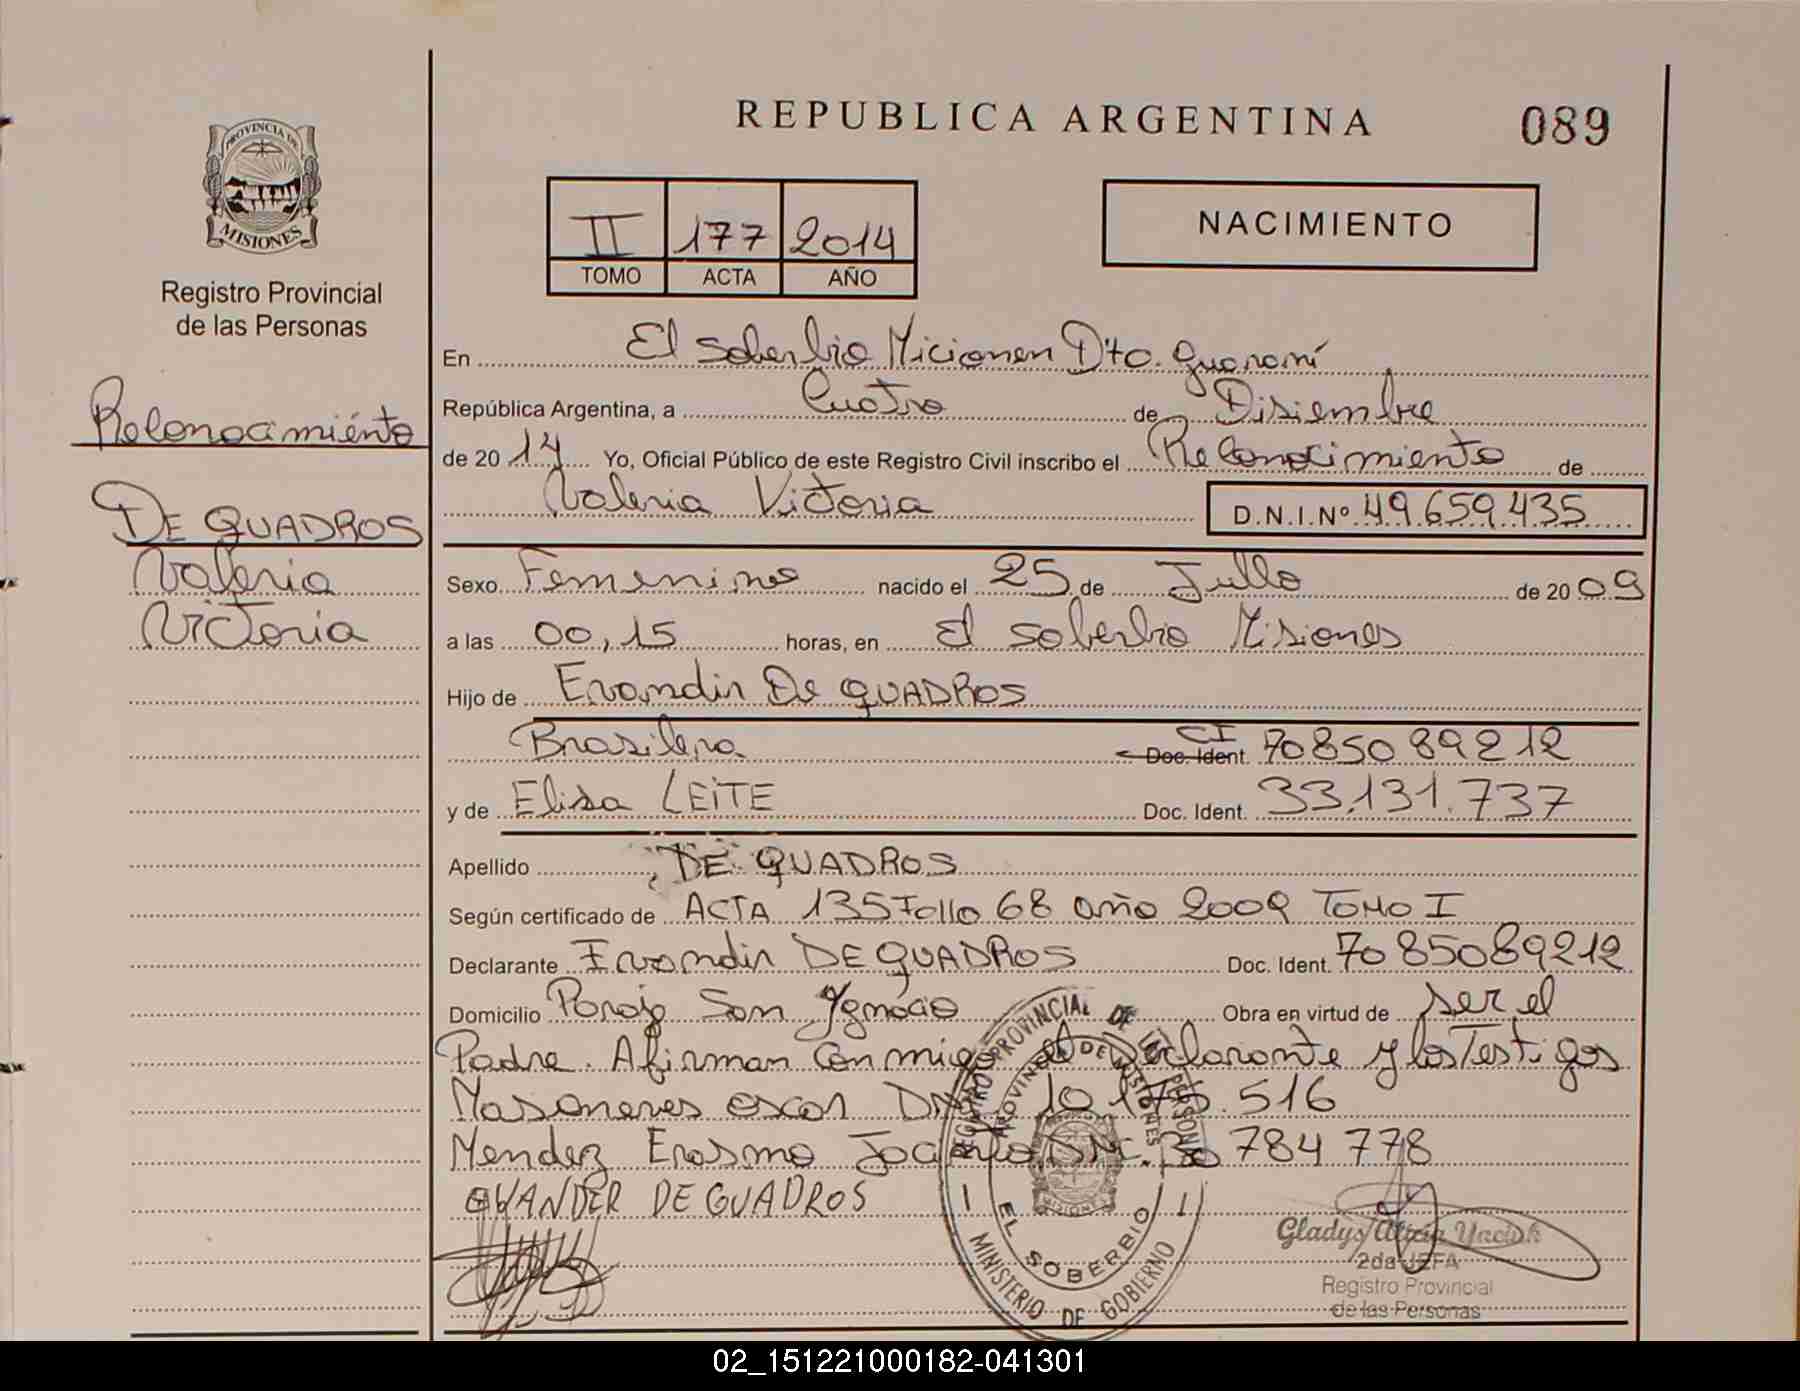 REPUBLICA ARGENTINA
089
PROVINCIA DE
MISIONES
Registro Provincial
de las Personas
II 177 2014
TOMO ACTA AÑO
NACIMIENTO
Reconocimiento
DE QUADROS
Valeria
Victoria
En El Soberbio Micionen Dto. Guaraní
República Argentina, a Cuatro de Disiembre
de 2014 Yo, Oficial Público de este Registro Civil inscribo el Reconocimiento de
Valeria Victoria D.N.I.Nº 49.659.435
Sexo Femenino nacido el 25 de Jullo de 2009
a las 00,15 horas, en El Soberbio Misiones
Hijo de Evandir De QUADROS
Brasilera CI Doc. Ident. 7085089212
y de Elisa LEITE Doc. Ident. 33.131.737
Apellido DE QUADROS
Según certificado de ACTA 135 Follo 68 año 2009 TOMO I
Declarante Evandir DE QUADROS Doc. Ident. 7085089212
Domicilio Paraje San Ygnacio Obra en virtud de ser el
Padre. Afirman Conmigo el Declarante y los Testigos
oscar DNI 10 175.516
Mendez Erasmo DNI. 30 784 778
DE QUADROS
REGISTRO PROVINCIAL DE LAS PERSONAS
PROVINCIA DE MISIONES
MISIONES
EL SOBERBIO
MINISTERIO DE GOBIERNO
Gladys
2da JEFA
Registro Provincial
de las Personas
02_151221000182-041301